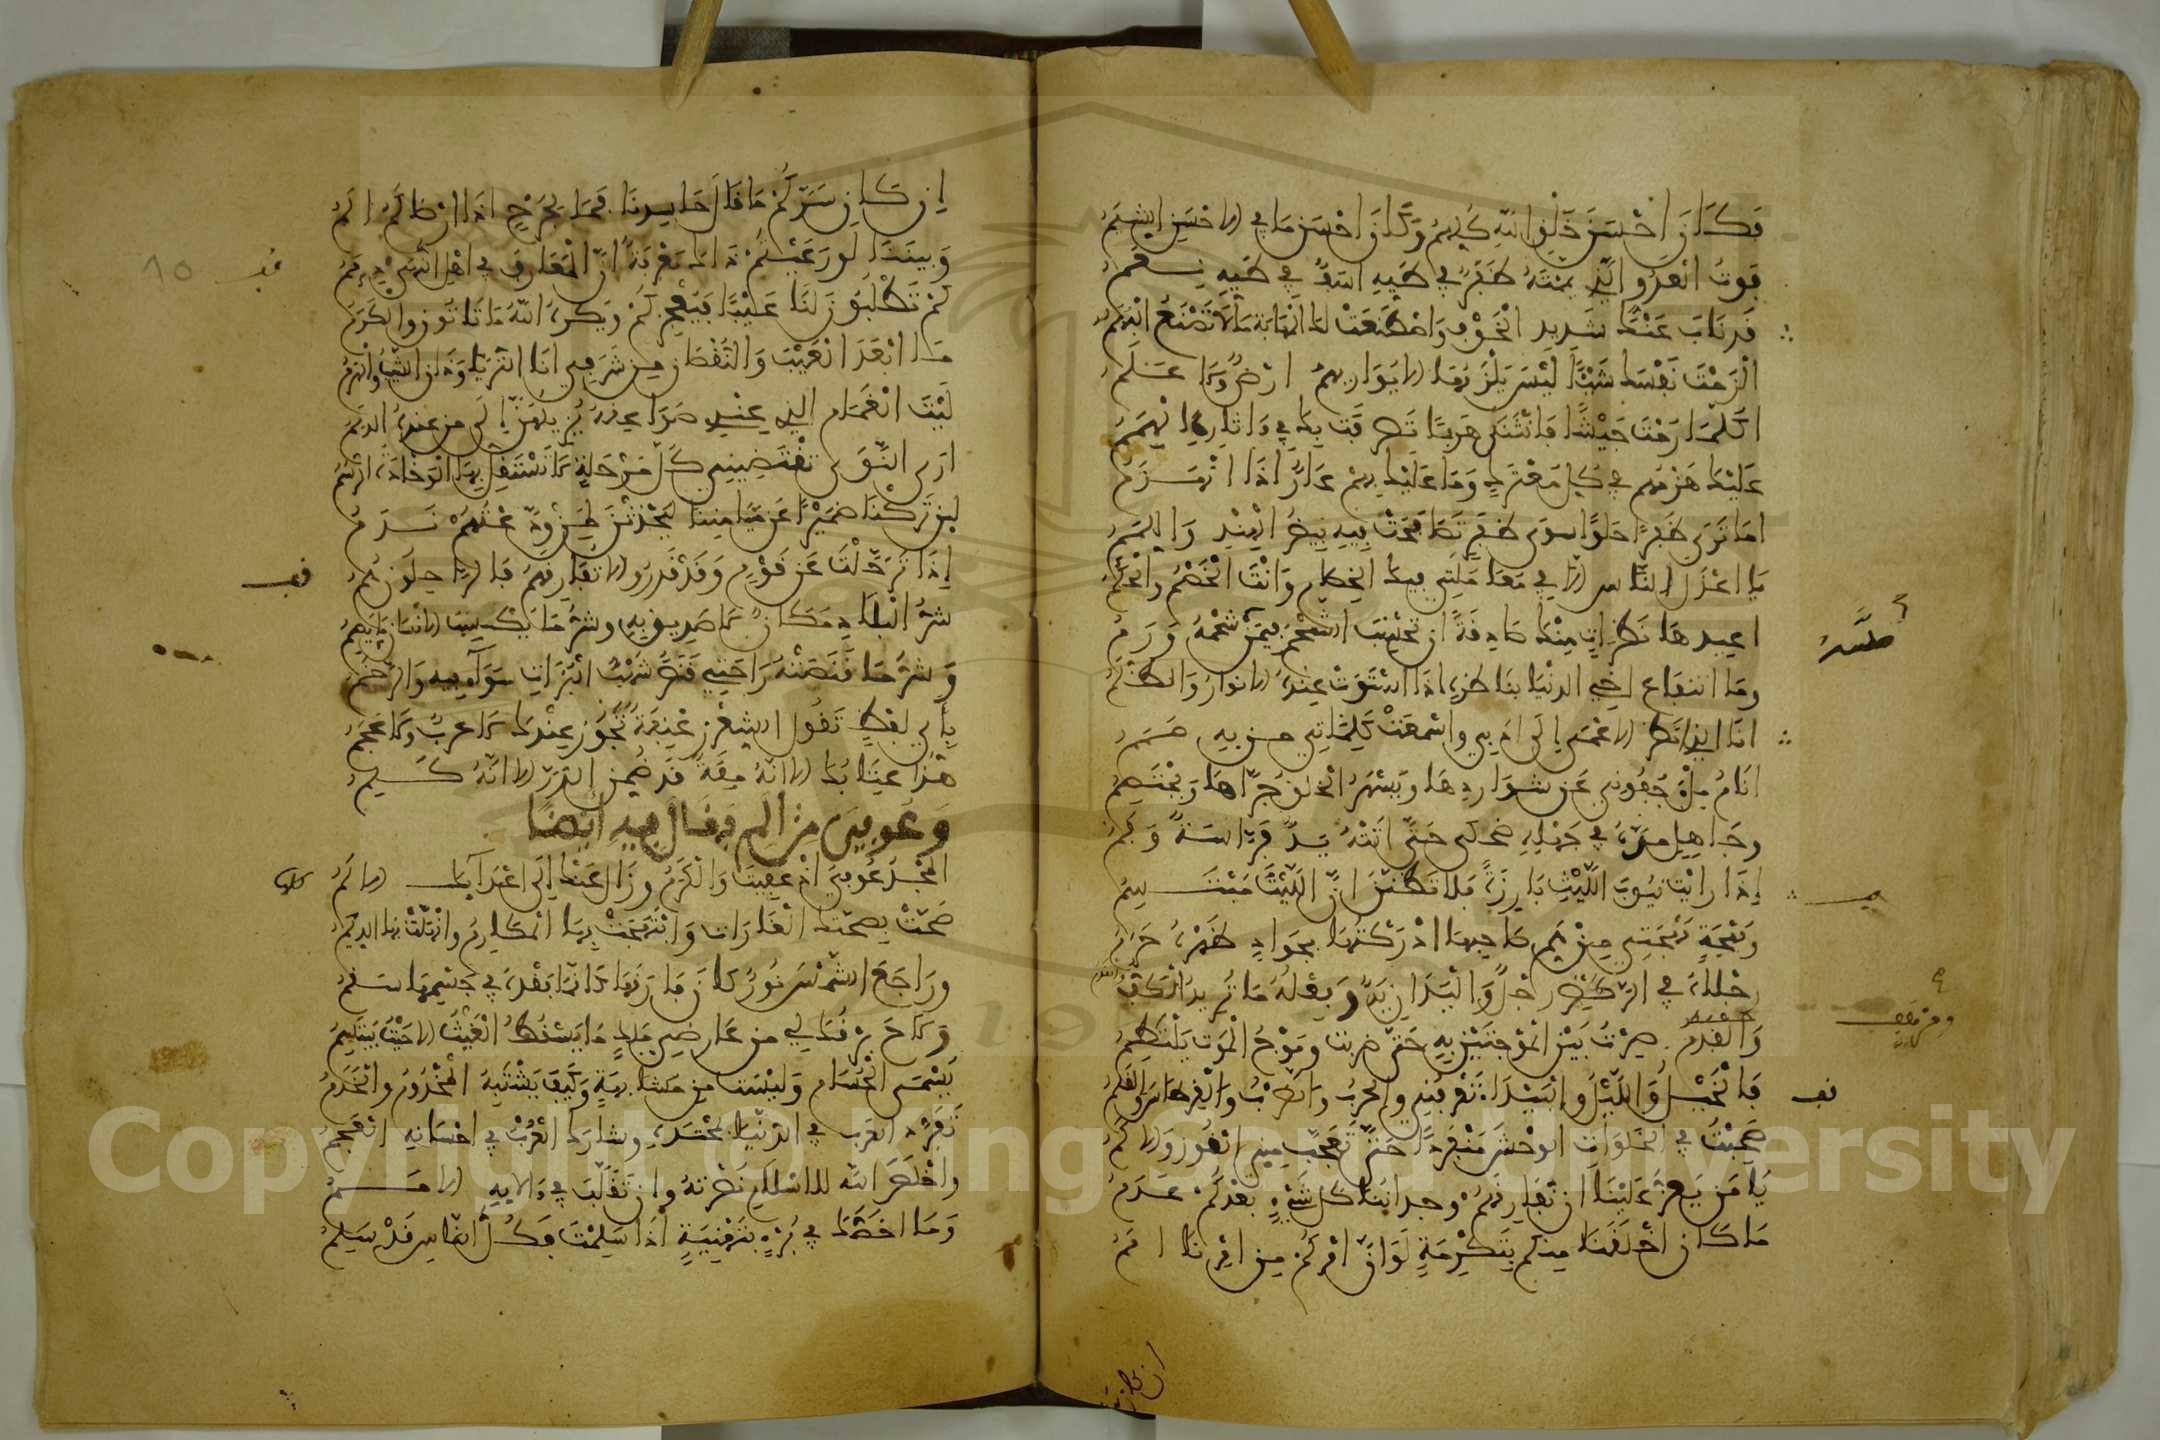 فكان احسن خلق الله كلهم وكان احسن ما في الاحسن الشيم
فوت العدو الذي يممته ظفر في طيه اسف في طيه نعم
قد ناب عنك شديد الخوف واصطنعت لك المهابة ما لا تصنع البهم
الزمت نفسك شيئا ليس يلزمها الا يواريهم ارض ولا علم
اكلما رمت جيشا فانثنى هربا تصرفت بك في ءاثاره الهمم
عليك هزمهم في كل معترك وما عليك بهم عار اذا انهزموا
اما ترى ظفرا حلوا سوى ظفر تصافحت فيه بيض الهند واللمم
يا اعدل الناس الا في معاملتي فيك الخصام وانت الخصم والحكم
اعيدها نظرات منك صادقة ان تحسب الشحم فيمن شحمه ورم
وما انتفاع اخي الدنيا بناظره اذا استوت عنده الانوار والظلم
انا الذي نظر الاعمى الى ادبي واسمعت كلماتي من به صمم
انام ملء جفوني عن شواردها ويسهر الخلق جراها ويختصم
وجاهل مده في جهله ضحكي حتى اتته يد فراسة وفم
إذا رايت نيوب الليث بارزة فلا تظنن ان الليث مبتسم
ومهجة مهجتي من هم صاحبها ادركتها بجواد ظهره حرم
رجلاه في الركض رجل واليدان يد وفعله ما تريد الكف والقدم
ومرهف صرت بين الموجتين به حتى ضربت وموج الموت يلتطم
فالخيل والليل والبيداء تعرفني والحرب والضرب والقرطاس والقلم
صحبت في الفلوات الوحش منفردا حتى تعجب مني القور والاكم
يا من يعز علينا ان نفارقهم وجداننا كل شيء بعدكم عدم
ما كان اخلقنا منكم بتكرمة لو ان امركم من امرنا امم
ان كان سركم
إن كان سركم ما قال حاسدنا فما لجرح اذا ارضاكم الم
وبيننا لو رعيتم ذاك معرفة ان المعارف في اهل النهى ذمم
كم تطلبون لنا عيبا فيعجزكم ويكره الله ما تاتون والكرم
ما ابعد العيب والنقصان من شرفي انا الثريا وذان الشيب والهرم
ليت الغمام الذي عندي صواعقه يزيلهن إلى من عنده الديم
ارى النوى تقتضيني كل مرحلة لا تستقل بها الوخادة الرسم
لين تركنا ضميرا عن ميامننا ليحدثن لمن ودعتهم ندم
إذا ترحلت عن قوم وقد قدروا الا تفارقهم فالراحلون هم
شر البلاد مكان لا صديق به وشر ما يكسب الانسان ما يصم
وشر ما قنصته راحتي قنص شهب البزات سواء فيه والرخم
بأي لفظ تقول الشعر زعنفة تجوز عندك لا عرب ولا عجم
هذا عتابك الا انه مقة قد ضمن الدر الا انه كلم
وعوفي من الم فقال فيه أيضا
المجد عوفي اذ عوفيت والكرم وزال عنك إلى اعدايك الالم
صحت بصحتك الغارات وابتهجت بها المكارم وانهلت بها الديم
وراجع الشمس نور كان فارقها كانما فقده في جسمها سقم
ولاح برقك لي من عارضي ملك ما يسقط الغيث الا حيث يبتسم
يسمى الحسام وليست من مشابهة وكيف يشتبه المخدوم والخدم
تفرد العرب في الدنيا بمحتده وشارك العرب في احسانه العجم
واخلص الله للاسلام نصرته وان تقلب في ءالايه الامم
وما اخصك في برء بتهنية اذا سلمت فكل الناس قد سلموا